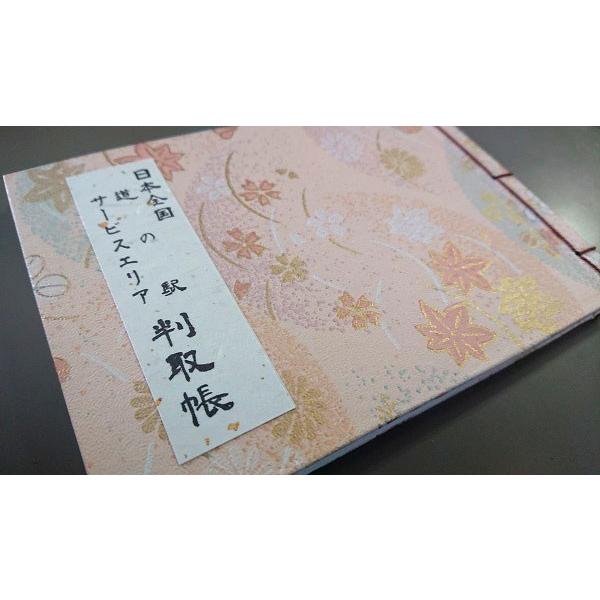 日本全国
道の駅
サービスエリア
判取帳